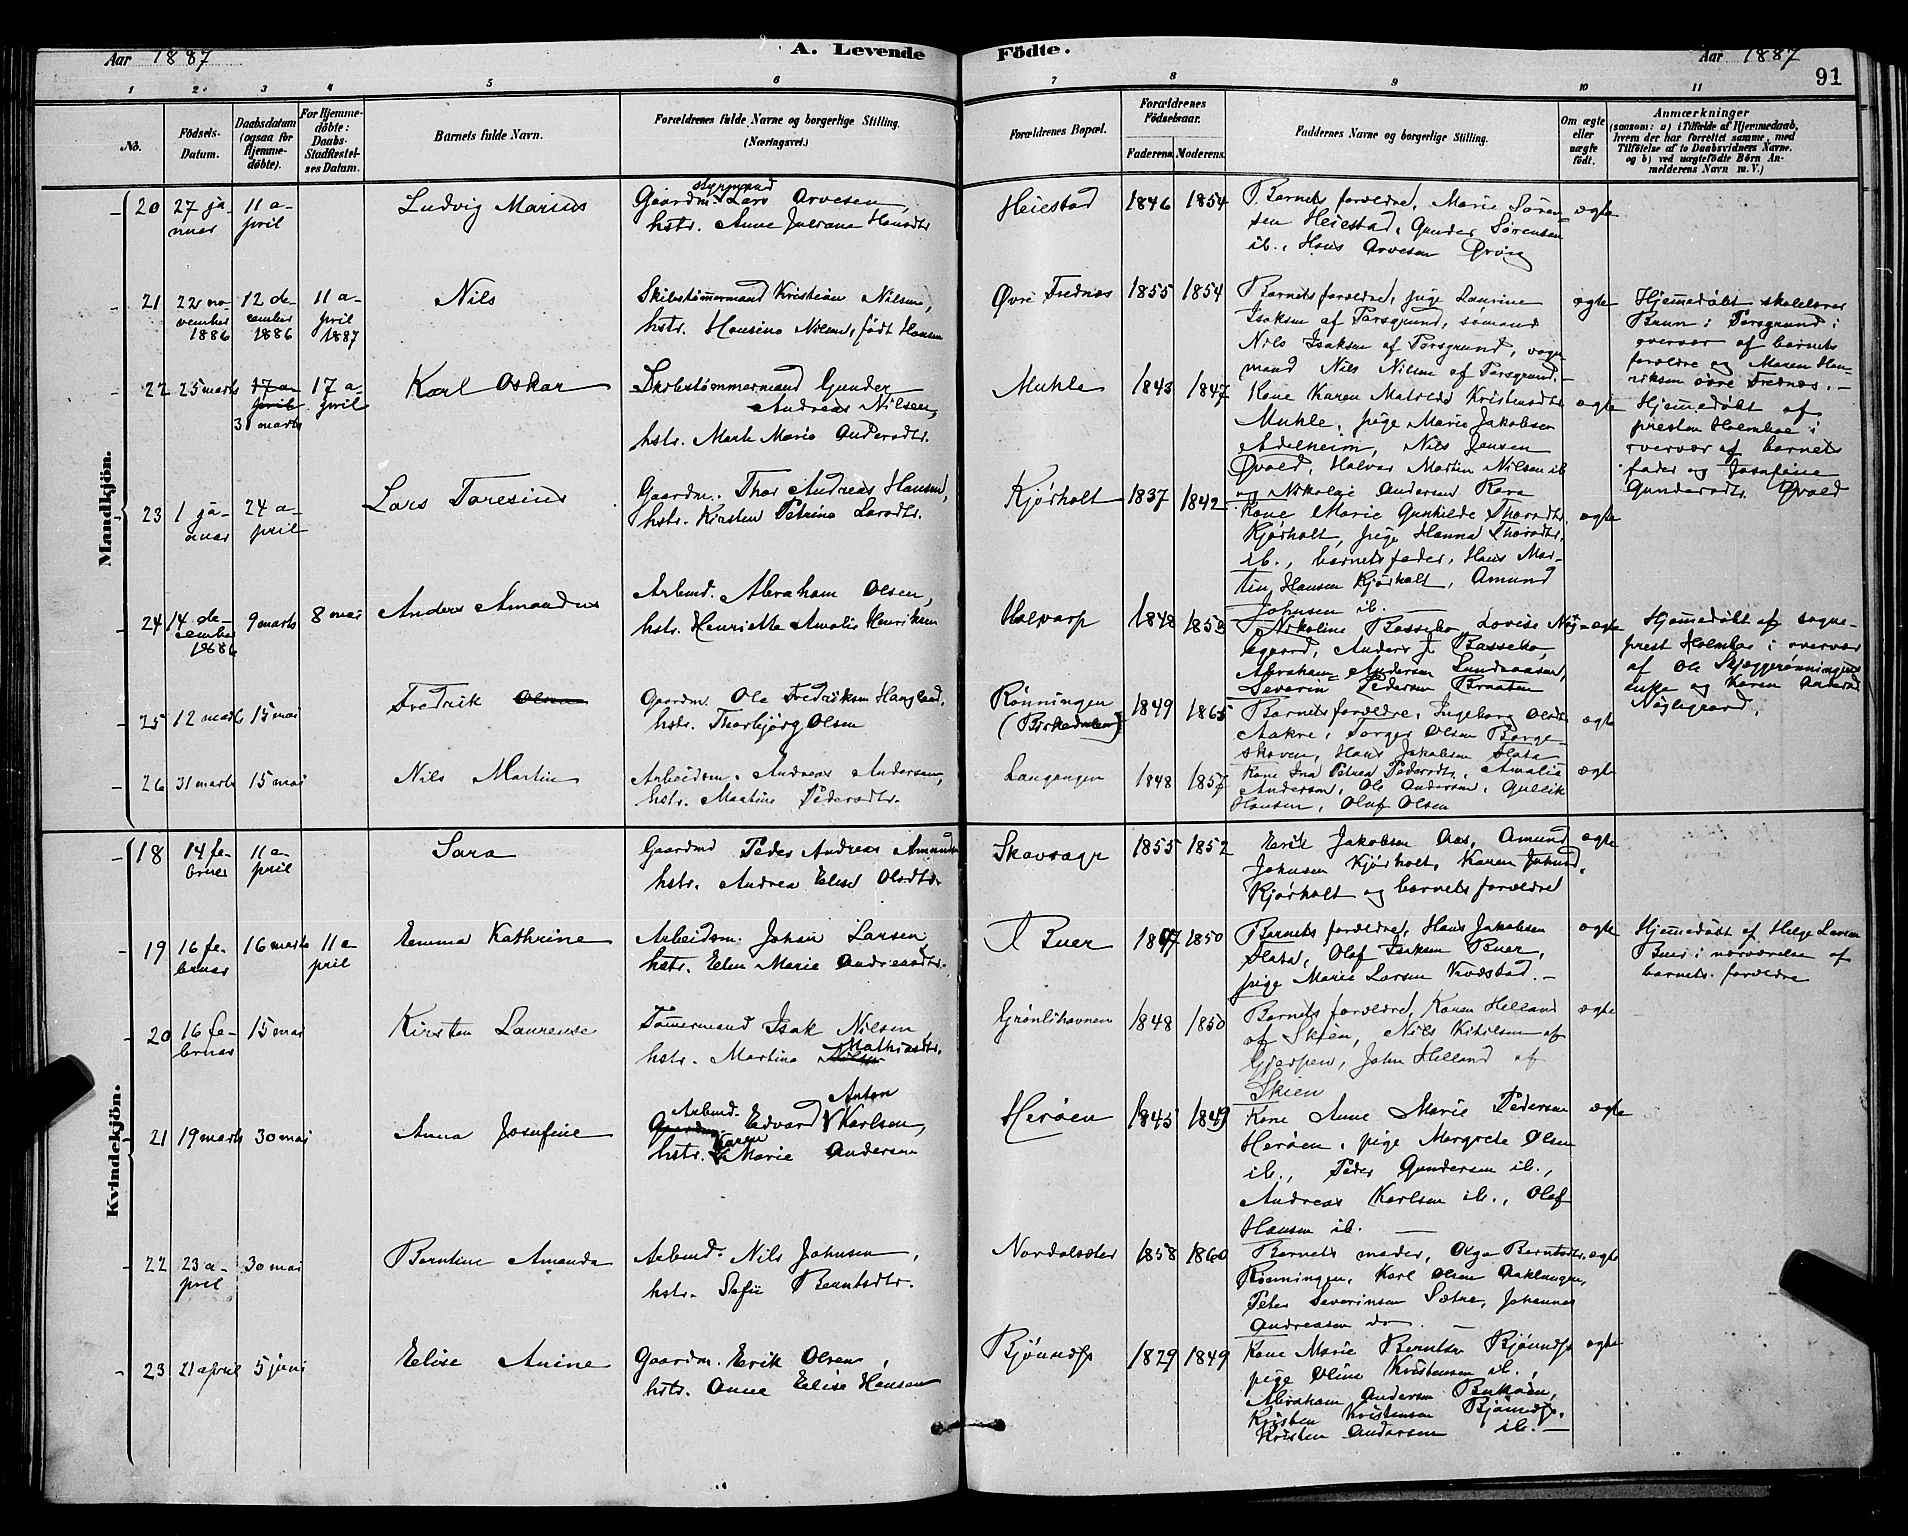 Aar 1887
A. Levende Fødte.
Aar 1887
91
1 2 3 4 5 6 7 8 9 10 11
No.
Fødsels-Datum.
Daabsdatum (ogsaa for Hjemme-døbte).
For Hjemme-døbte: Daabs-Stadfæstel-ses Datum.
Barnets fulde Navn.
Forældrenes fulde Navne og borgerlige Stilling. (Næringsvei.)
Forældrenes Bopæl.
Forældrenes Fødselsaar.
Faderens. Moderens.
Faddernes Navne og borgerlige Stilling.
Om ægte eller uægte født.
Anmærkninger
(saasom: a) i Tilfælde af Hjemmedaab, hvem der har forrettet samme, med Tilføielse af to Daabsvidners Navne. og b) ved uægtefødte Børn Anmelderens Navn m. V.)
Mandkjön.
20 27 ja-nuar 11 a-pril
Ludvig Marius
Gaardm. styrmand Lars Arvesen
hstr. Anne
Heiestad 1846 1854
Barnets forældre, Marie Søren-
sen Heiestad, Gunder Sørensen
ib., Hans Arvesen
ægte
21 22 no-vember 1886 12 de-cember 1886 11 a-pril 1887
Nils
Skibstømmermand Kristian Nilsen,
hstr. Hansine Nilsen, født Hansen
Øvre Frednæs 1855 1854
Barnets forældre, pige Laurine
Isaksen af Porsgrund, sømand
Nils Isaksen af Porsgrund,
mand Nils Nilsen af Porsgrund.
ægte
Hjemmedøbt skolelærer
Bruun i Porsgrund i
overvær af barnets
forældre og Maren Hen-
riksen øvre Frednæs.
22 25 marts 17 april 31 marts 17 a-pril
Karl Oskar
Skibstømmermand Gunder
Andreas Nilsen,
hstr. Marte Marie Andersdtr.
Muhle 1843 1847
Kone Karen Matilde Kristensdtr
Muhle, pige Marie Jakobsen
Adelheim, Nils Jensen
Øvald, Halvor Martin Nilsen ib
og Nikolai Andersen
ægte
Hjemmedøbt af
presten Holmboe i
overvær af barnets
fader og Josefine
Gundersdtr. Øvald
23 1 ja-nuar 24 a-pril
Lars Toresius
Gaardm. Thor Andreas Hansen,
hstr. Kirsten Petrine Larsdtr.
Kjørholt 1837 1842
Kone Marie Gunhilde Thorsdtr
Kjørholt, pige Hanna Thorsdtr.
ib., barnets fader, Hans Mar-
tin Hansen Kjørholt, Amund
Johnsen ib.
ægte
24 14 de-cember 1886 9 marts 8 mai
Anders Amandus
Arbmd. Abraham Olsen,
hstr. Henriette Amalie Henriksen
Halvarp 1848 1853
Nikoline Bassebo, Lovise Nøg-
legaard, Anders J. Bassebo,
Abraham Andersen Sundsaasen,
Severin Pedersen Braaten
ægte
Hjemmedøbt af sogne-
prest Holmboe i overvær
af Ole Skjeggerønningens
enke og Karen Andersd.
Nøglegaard.
25 12 marts 15 mai
Fredrik Olsen
Gaardm. Ole Fredriksen Haugland,
hstr. Thorbjørg Olsen
Rønningen
(Birkedalen) 1849 1865
Barnets forældre, Ingeborg Olsdtr
Aakre, Torger Olsen Borge-
skoven, Hans Jakobsen Flata
ægte
26 31 marts 15 mai
Nils Martin
Arbeidsm. Andreas Andersen,
hstr. Martine Pedersdtr.
Langangen 1848 1857
Kone Ina Petrea Pedersdtr., Amalie
Andersen, Ole Andersen, Gullik
Hansen, Oluf Olsen
ægte
Kvindekjön.
18 14 fe-bruar 11 a-pril
Sara
Gaardmd Peder Andreas Amundsen
hstr. Andrea Elise Olsdtr.
Skavsager 1855 1852
Erik Jakobsen Aas, Amund
Johnsen Kjørholt, Karen Johnsd.
Kjørholt og barnets forældre
ægte
19 16 fe-bruar 16 marts 11 a-pril
Emma Kathrine
Arbeidsm. Johan Larsen
hstr. Elen Marie Andreasdtr.
Buer 1850
Barnets forældre, Hans Jakobsen
Flata, Olaf Isaksen Buer,
pige Marie Larsen
ægte
Hjemmedøbt af Helge Larsen
Buer i nærværelse af
barnets forældre
20 16 fe-bruar 15 mai
Kirsten Laurense
Tømmermand Isak Nilsen
hstr. Martine Nilsen Mathiasdtr.
Grønlihavnen 1848 1850
Barnets forældre, Karen Helland
af Skien, Nils Kittilsen af
Gjerpen, John Helland af
Skien
ægte
21 19 marts 30 mai
Anna Josefine
Gaardm. Arbmd. Edvard Anton Karlsen,
hstr. Karen Marie Andersen
Herøen 1845 1849
Kone Anne Marie Pedersen
Herøen, pige Margrete Olsen
ib., Peder Gundersen ib.,
Andreas Karlsen ib., Olaf
Hansen ib.
ægte
22 23 a-pril 30 mai
Berntine Amanda
Arbmd. Nils Johnsen,
hstr. Sofie Berntsdtr.
Nordalsæter 1858 1860
Barnets moder, Olga Berntsdtr.
Rønningen, Karl Olsen Aaklungen,
Peter Severinsen Sætre, Johannes
Andreasen do
ægte
23 21 april 5 juni
Elise Anine
Gaardm. Erik Olsen,
hstr. Anne Elise Hansen
1829 1849
Kone Marie Berntsen
pige Oline Kristensen ib.,
Abraham Andersen
Kristen Kristensen
Kristen Andersen ib.
ægte